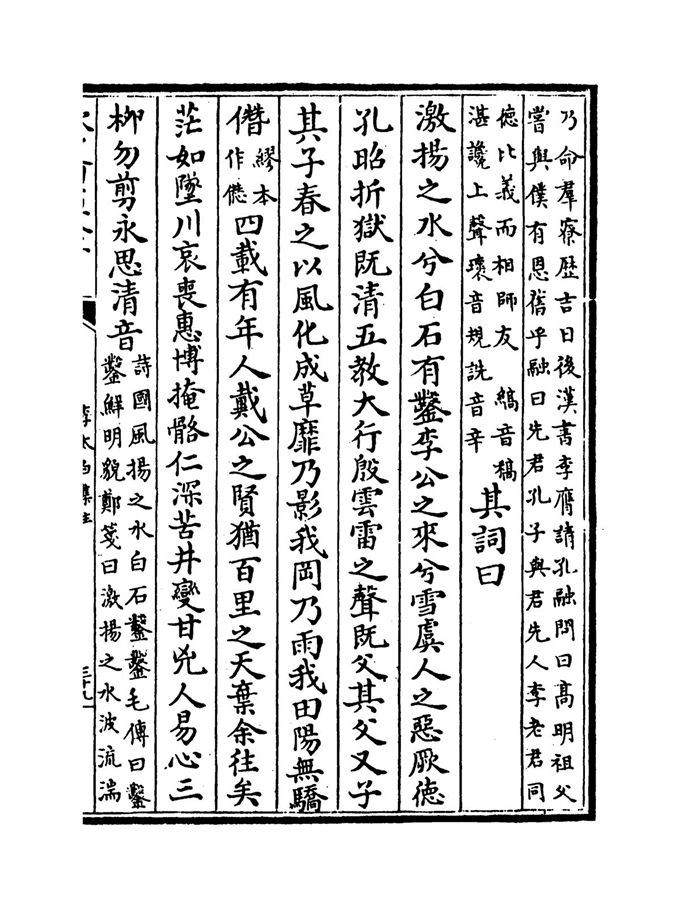 乃命羣寮歷吉日後漢書李膺請孔融問曰髙明祖父
嘗與僕有恩舊乎融曰先君孔子與君先人李老君同
德比義而相師友 縞音稿
湛讒上聲瓌音規詵音辛
其詞曰
激揚之水兮白石有鑿李公之來兮雪虞人之惡厥德
孔昭折獄既清五教大行殷雲雷之聲既父其父又子
其子春之以風化成草靡乃影我岡乃雨我田陽無驕
僭
繆本
作僁
四載有年人戴公之賢猶百里之天棄余往矣
茫如墜川哀喪惠博掩骼仁深苦井變甘兇人易心三
柳勿剪永思清音
詩國風揚之水白石鑿鑿毛傳曰鑿
鑿鮮明貌鄭箋曰激揚之水波流湍
李太白集注
三十九